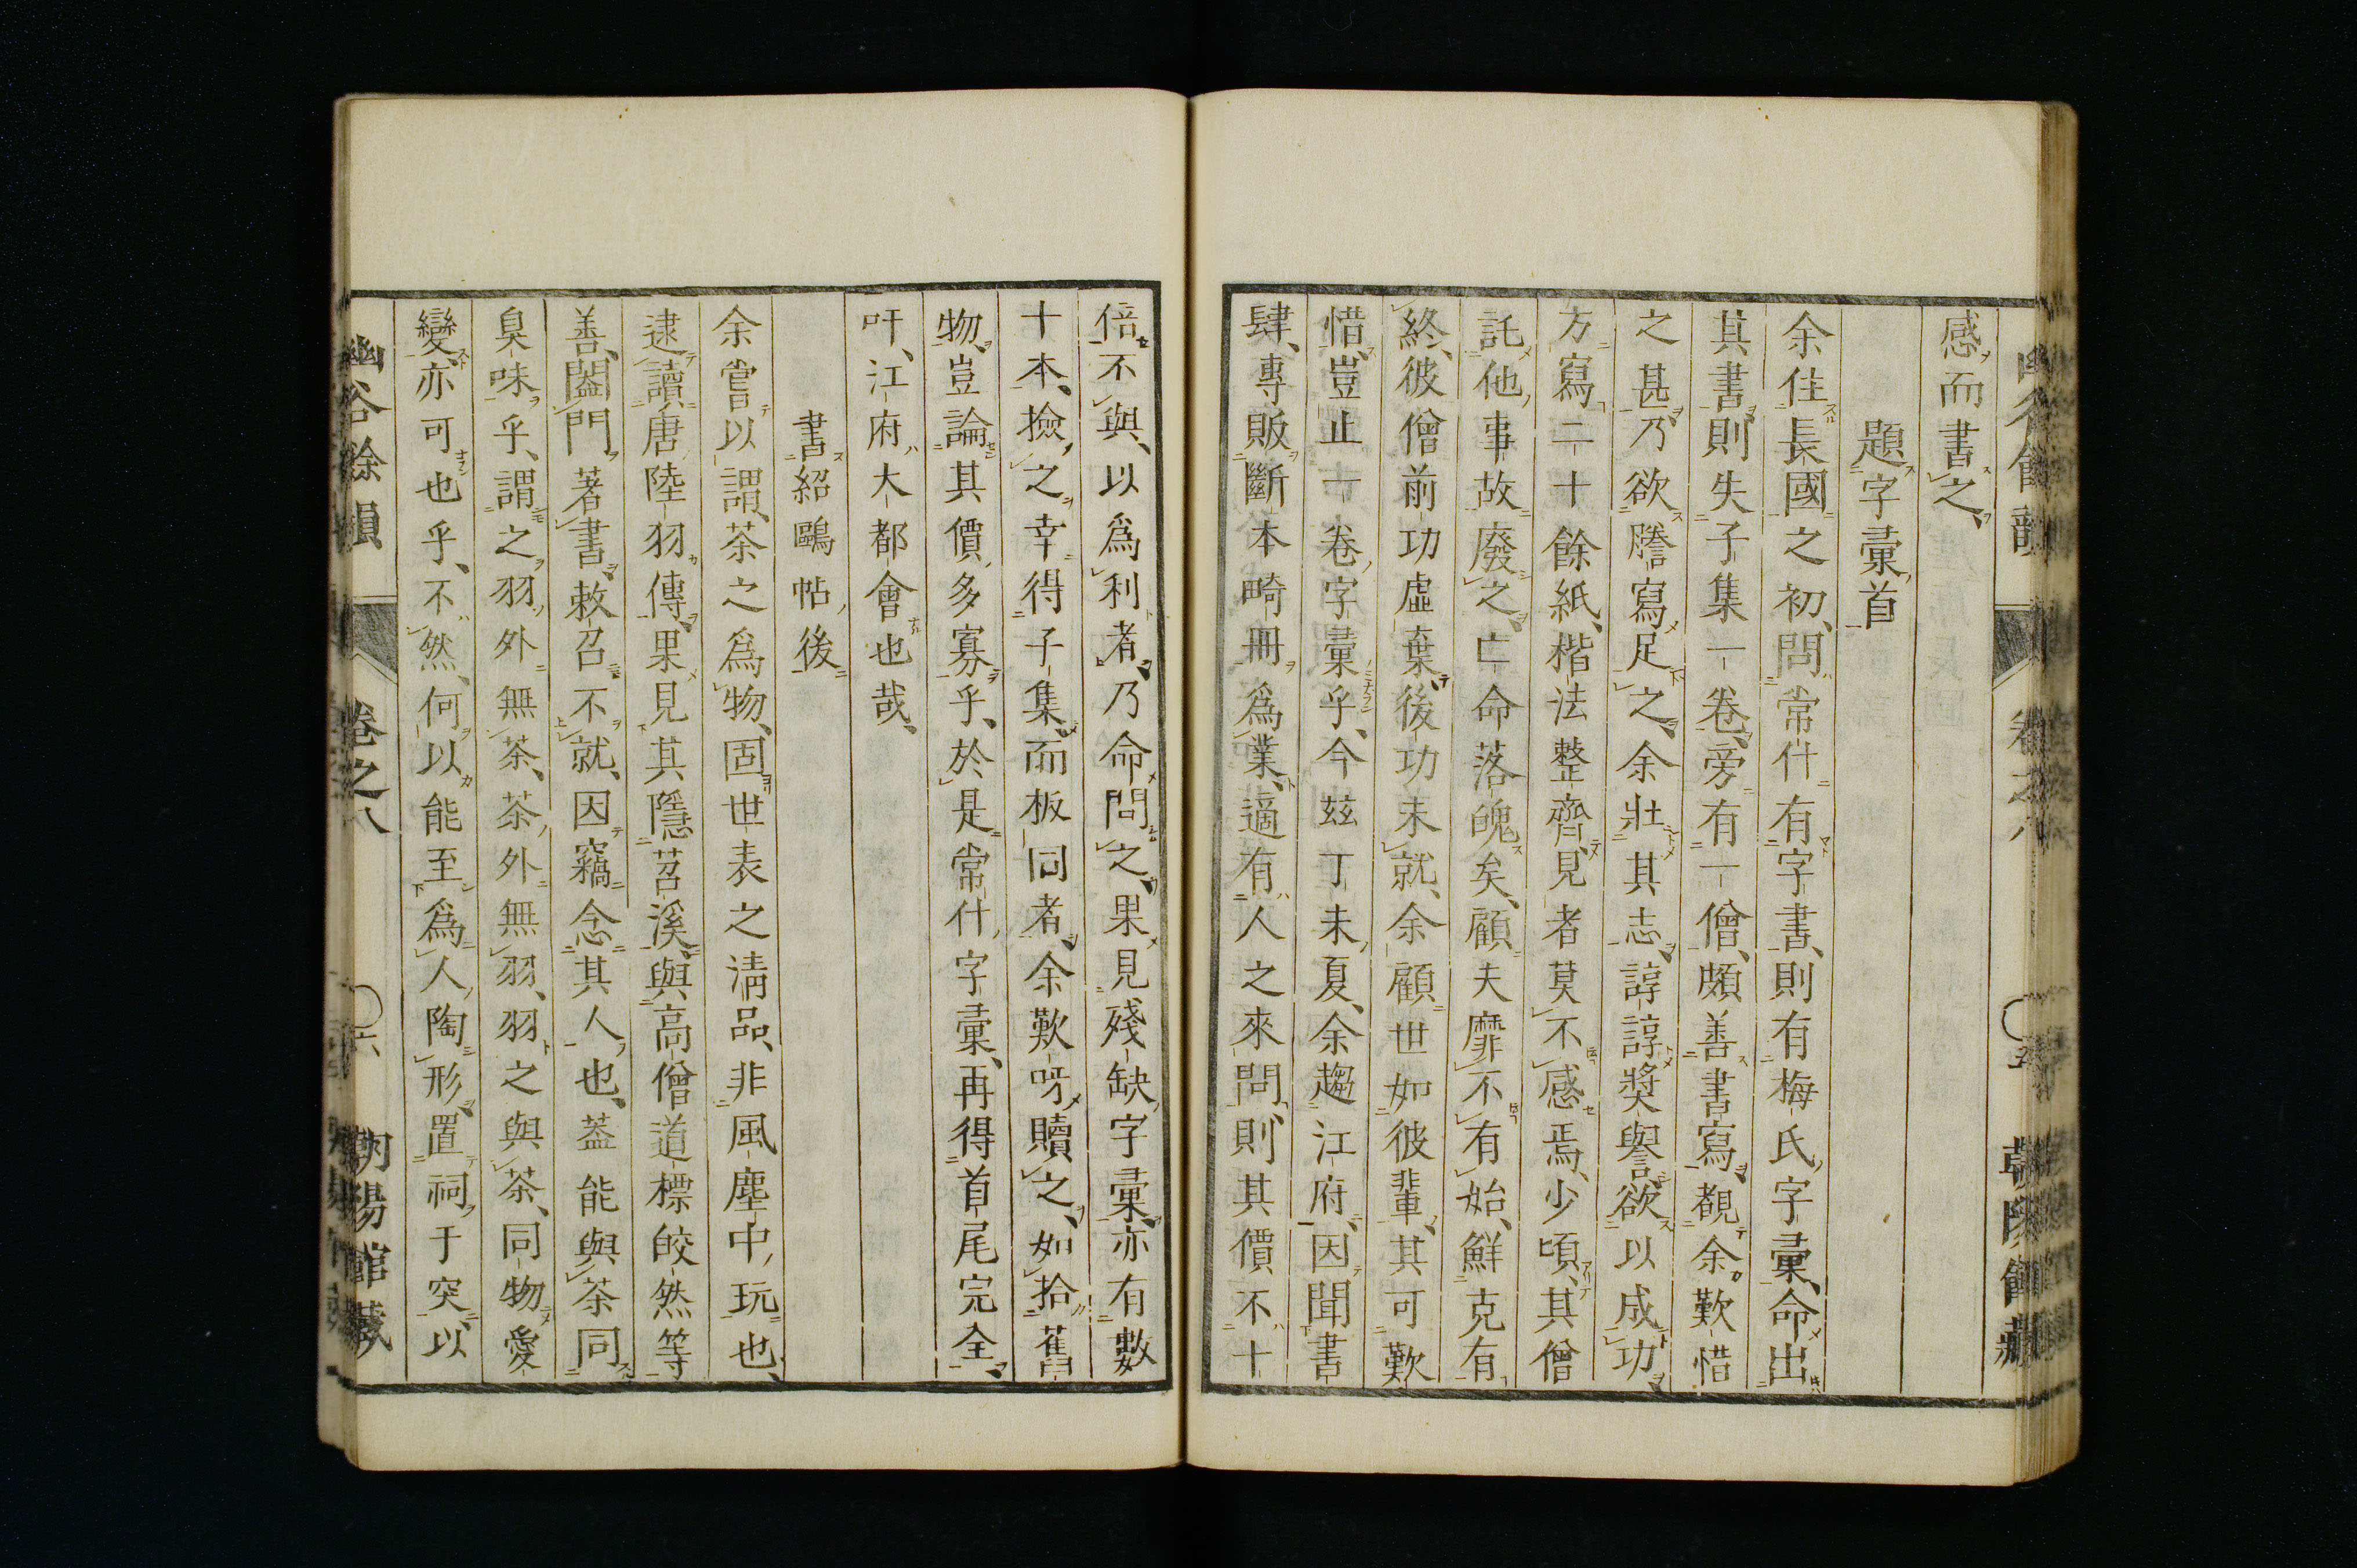 感而書之、
題字彙首
余住長國之初、問常什有字書、則有梅氏字彙、命出
其書則失子集一卷、旁有一僧、頗善書寫、覩余歎惜
之甚、乃欲謄寫足之、余壯其志、諄諄奬譽、欲以成功、
方寫二十餘紙、楷法整齊、見者莫不感焉、少頃、其僧
託他事故廢之、亡命落魄矣、顧夫靡不有始、鮮克有
終、彼僧前功虛棄、後功未就、余顧世如彼輩、其可歎
惜、豈止一卷字彙乎、今茲丁未夏、余趨江府、因聞書
肆、專販斷本畸冊爲業、適有人之來問、則其價不十
倍不與、以爲利者、乃命問之、果見殘缺字彙、亦有數
十本、撿之幸得子集、而板同者、余歎呀贖之、如拾舊
物、豈論其價多寡乎、於是常什字彙、再得首尾完全、
吁、江府大都會也哉、
書紹鷗帖後
余嘗以謂、茶之爲物、固世表之淸品、非風塵中玩也、
逮讀唐陸羽傳、果見其隱苕溪、與高僧道標皎然等
善、闔門著書、敕召不就、因竊念其人也、蓋能與茶同
臭味乎、謂之羽外無茶、茶外無羽、羽之與茶、同物愛
變、亦可也乎、不然、何以能至爲人陶形、置祠于突、以
幽谷餘韻 卷之八 〇六 朝陽館藏